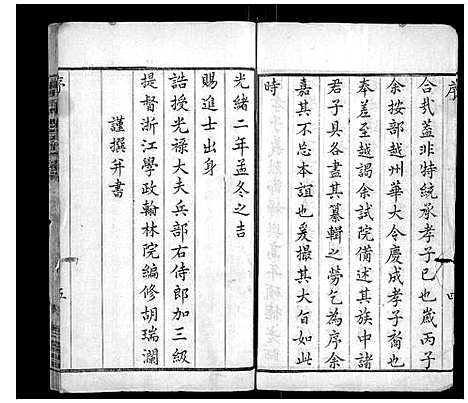 序
合哉蓋非特統承孝子已也歲丙子
余按部越州華大令慶成孝子裔也
奉差至越謁余試院備述其族中諸
君子具各盡其纂輯之勞乞為序余
嘉其不忘本誼也爰撮其大旨如此
時
光緒二年孟冬之吉
賜進士出身
誥授光祿大夫兵部右侍郎加三級
提督浙江學政翰林院編修胡瑞瀾
謹撰并書
序
五